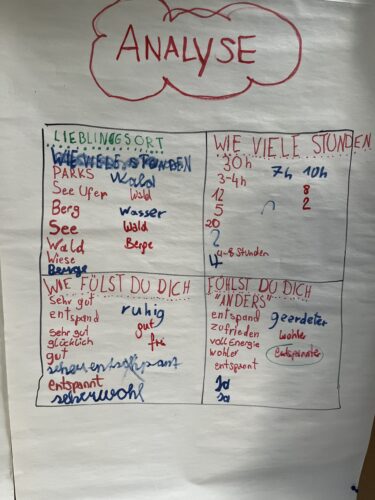 ANALYSE
LIEBLINGSORT
WIE VIELE STUNDEN
PARKS Wald
See Ufer Wald
Berg Wasser
See Wald
Wald Berge
Wiese
Berge
WIE VIELE STUNDEN
30h 7h 10h
3-4h
12 8
5 2
20
2
4 4-8 Stunden
WIE FÜLST DU DICH
sehr gut ruhig
entspand
sehr gut gut
glücklich frei
gut
entspannt
seherwohl
FÜHLST DU DICH
"ANDERS"
entspand geerdeter
zufrieden wohler
voll Energie
wohler entspannter
entspannt
Ja
Ja